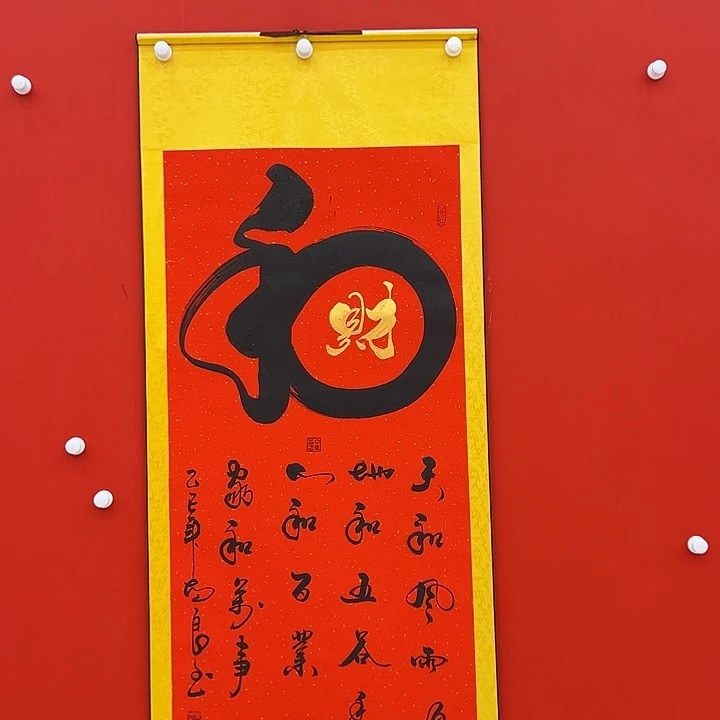 和
財
天和風雨
地和五谷
人和百業
家和萬事
乙巳年